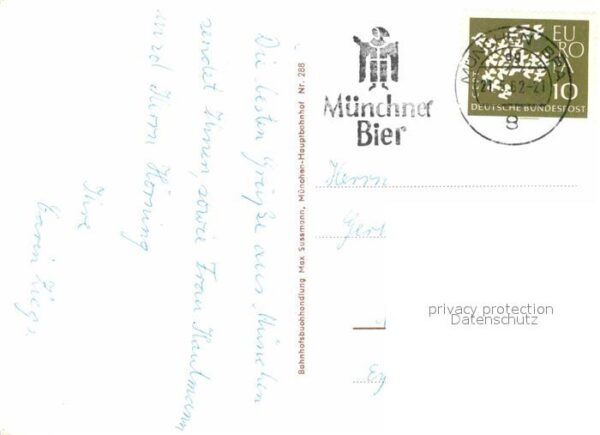 Die besten Grüße aus München
sendet Ihnen, sowie Frau Hautmann
und Herrn Hörning
Ihre
Karin
Bahnhofsbuchhandlung Max Sussmann, München-Hauptbahnhof Nr. 288
Münchner
Bier
EU
RO
10
DEUTSCHE BUNDESPOST
MÜNCHEN BPA
8
Herrn
Ger
privacy protection
Datenschutz